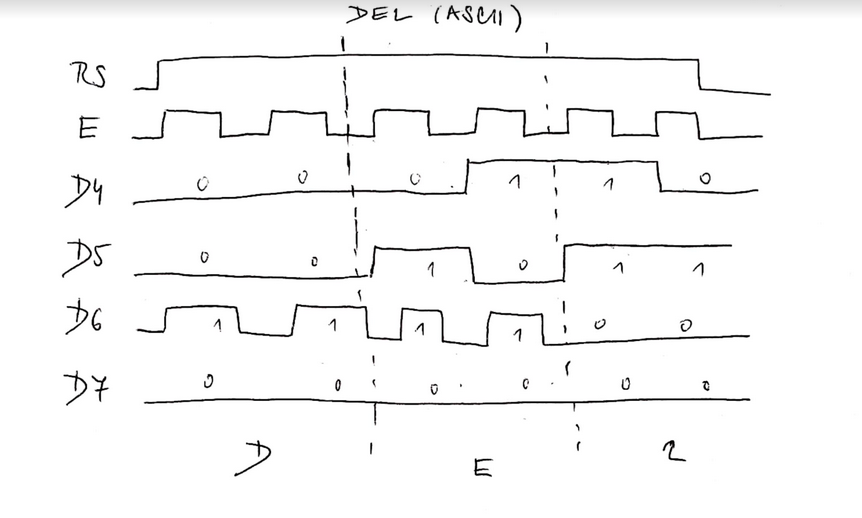 DEL (ASCII)
RS
E
D4 0 0 0 1 1 0
D5 0 0 1 0 1 1
D6 1 1 1 1 0 0
D7 0 0 0 0 0 0
D E 2